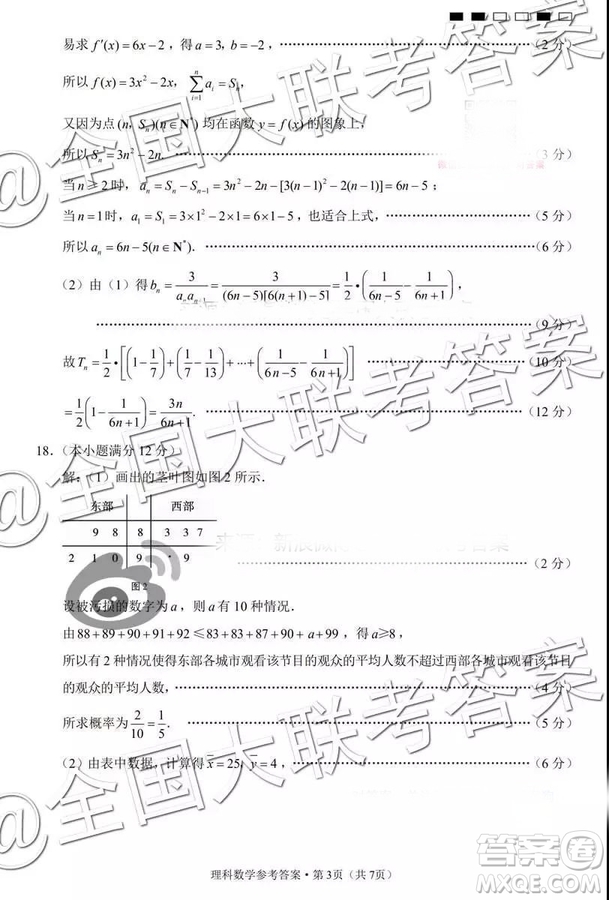 易求 f′(x)=6x−2，得 a=3，b=−2，……（2分）
所以 f(x)=3x²−2x，∑ᵢ₌₁ⁿ aᵢ=Sₙ，
又因为点(n, Sₙ)(n∈N*)均在函数 y=f(x) 的图象上，
所以 Sₙ=3n²−2n. ……（3分）
当 n≥2 时，aₙ=Sₙ−Sₙ₋₁=3n²−2n−[3(n−1)²−2(n−1)]=6n−5；
当 n=1 时，a₁=S₁=3×1²−2×1=6×1−5，也适合上式，……（5分）
所以 aₙ=6n−5(n∈N*). ……（6分）
（2）由（1）得 bₙ=3/(aₙaₙ₊₁)=3/((6n−5)[6(n+1)−5])=1/2•(1/(6n−5)−1/(6n+1))，
……（9分）
故 Tₙ=1/2•[(1−1/7)+(1/7−1/13)+…+(1/(6n−5)−1/(6n+1))] ……（10分）
=1/2(1−1/(6n+1))=3n/(6n+1). ……（12分）
18.（本小题满分12分）
解：（1）画出的茎叶图如图2所示.
东部 西部
9 8 8 3 3 7
2 1 0 9 • 9
……（2分）
图2
设被污损的数字为 a，则 a 有 10 种情况.
由 88+89+90+91+92≤83+83+87+90+a+99，得 a≥8，
所以有2种情况使得东部各城市观看该节目的观众的平均人数不超过西部各城市观看该节目
的观众的平均人数，……（4分）
所求概率为 2/10=1/5. ……（5分）
（2）由表中数据，计算得 x̄=25，ȳ=4，……（6分）
理科数学参考答案·第3页（共7页）
@全国大联考答案
@全国大联考答案
@全国大联考答案
答案圈
MXQE.COM